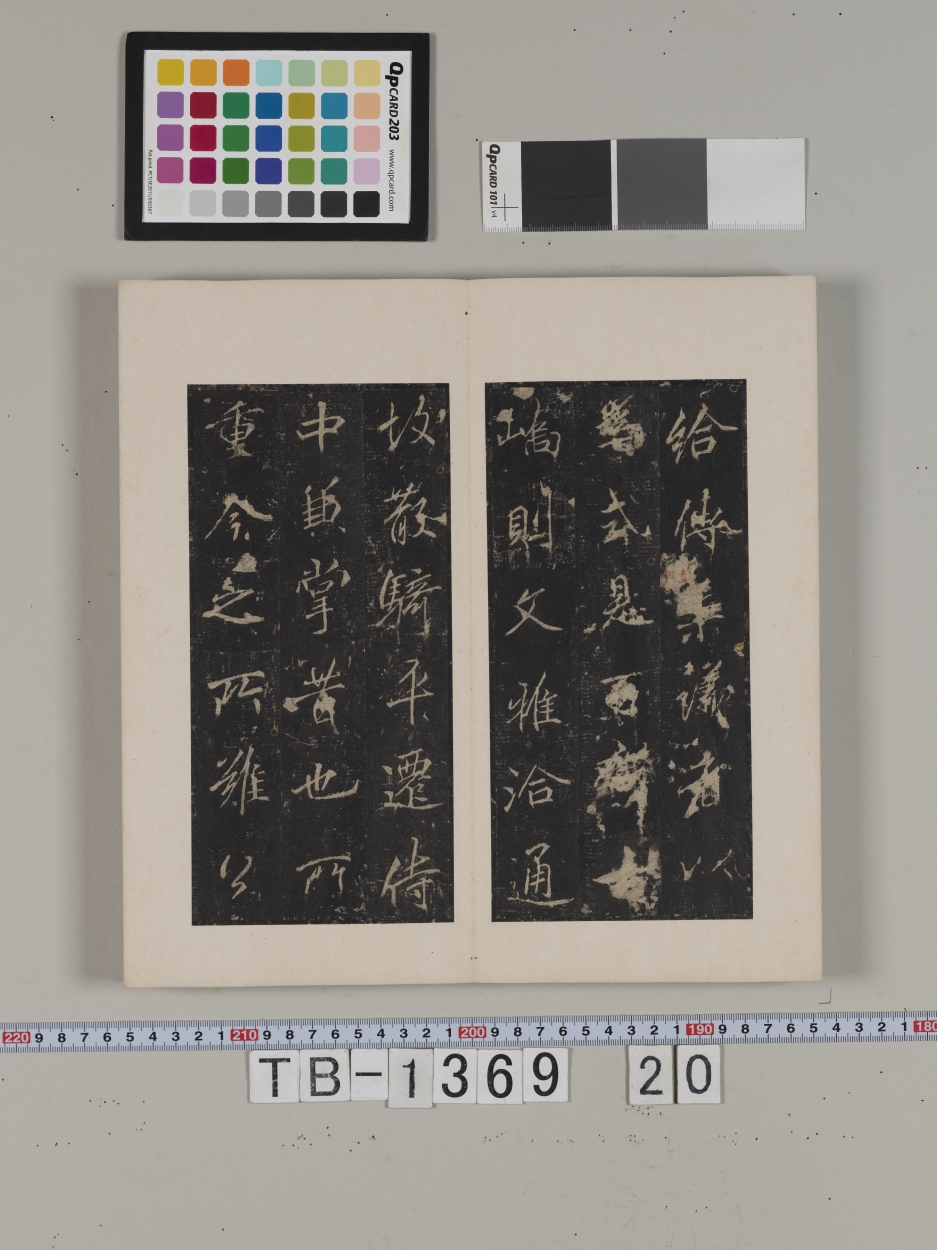 給傳議者以
式是百辟
嶠則文雅洽通
故散騎平遷侍
中兼掌昔也所
重今之所難公
QPCARD 203 www.qpcard.com
QPCARD 101 v4
220 9 8 7 6 5 4 3 2 1 210 9 8 7 6 5 4 3 2 1 200 9 8 7 6 5 4 3 2 1 190 9 8 7 6 5 4 3 2 1 180
TB-1369 20